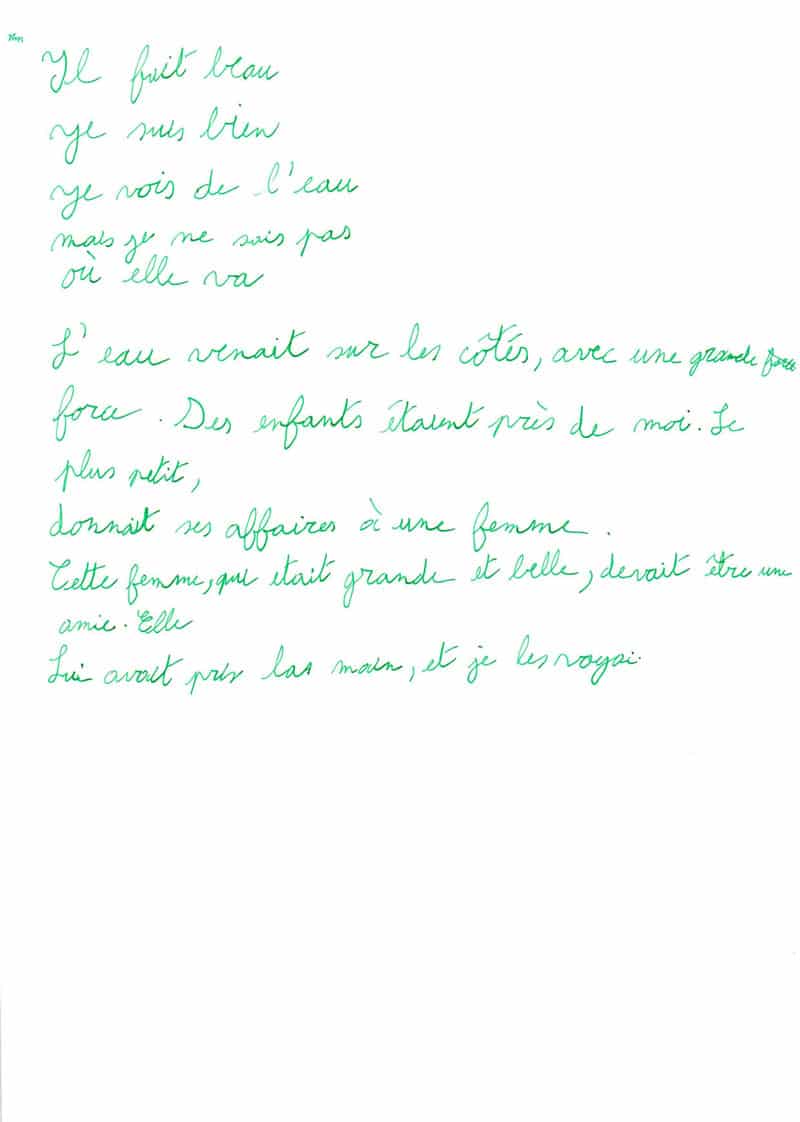 Il fait beau
je suis bien
je vois de l'eau
mais je ne sais pas
où elle va
L'eau venait sur les côtés, avec une grande force
force. Des enfants étaient près de moi. Le
plus petit,
donnait ses affaires à une femme.
Cette femme, qui etait grande et belle, devait être une
amie. Elle
Lui avait pris las main, et je les voyai.